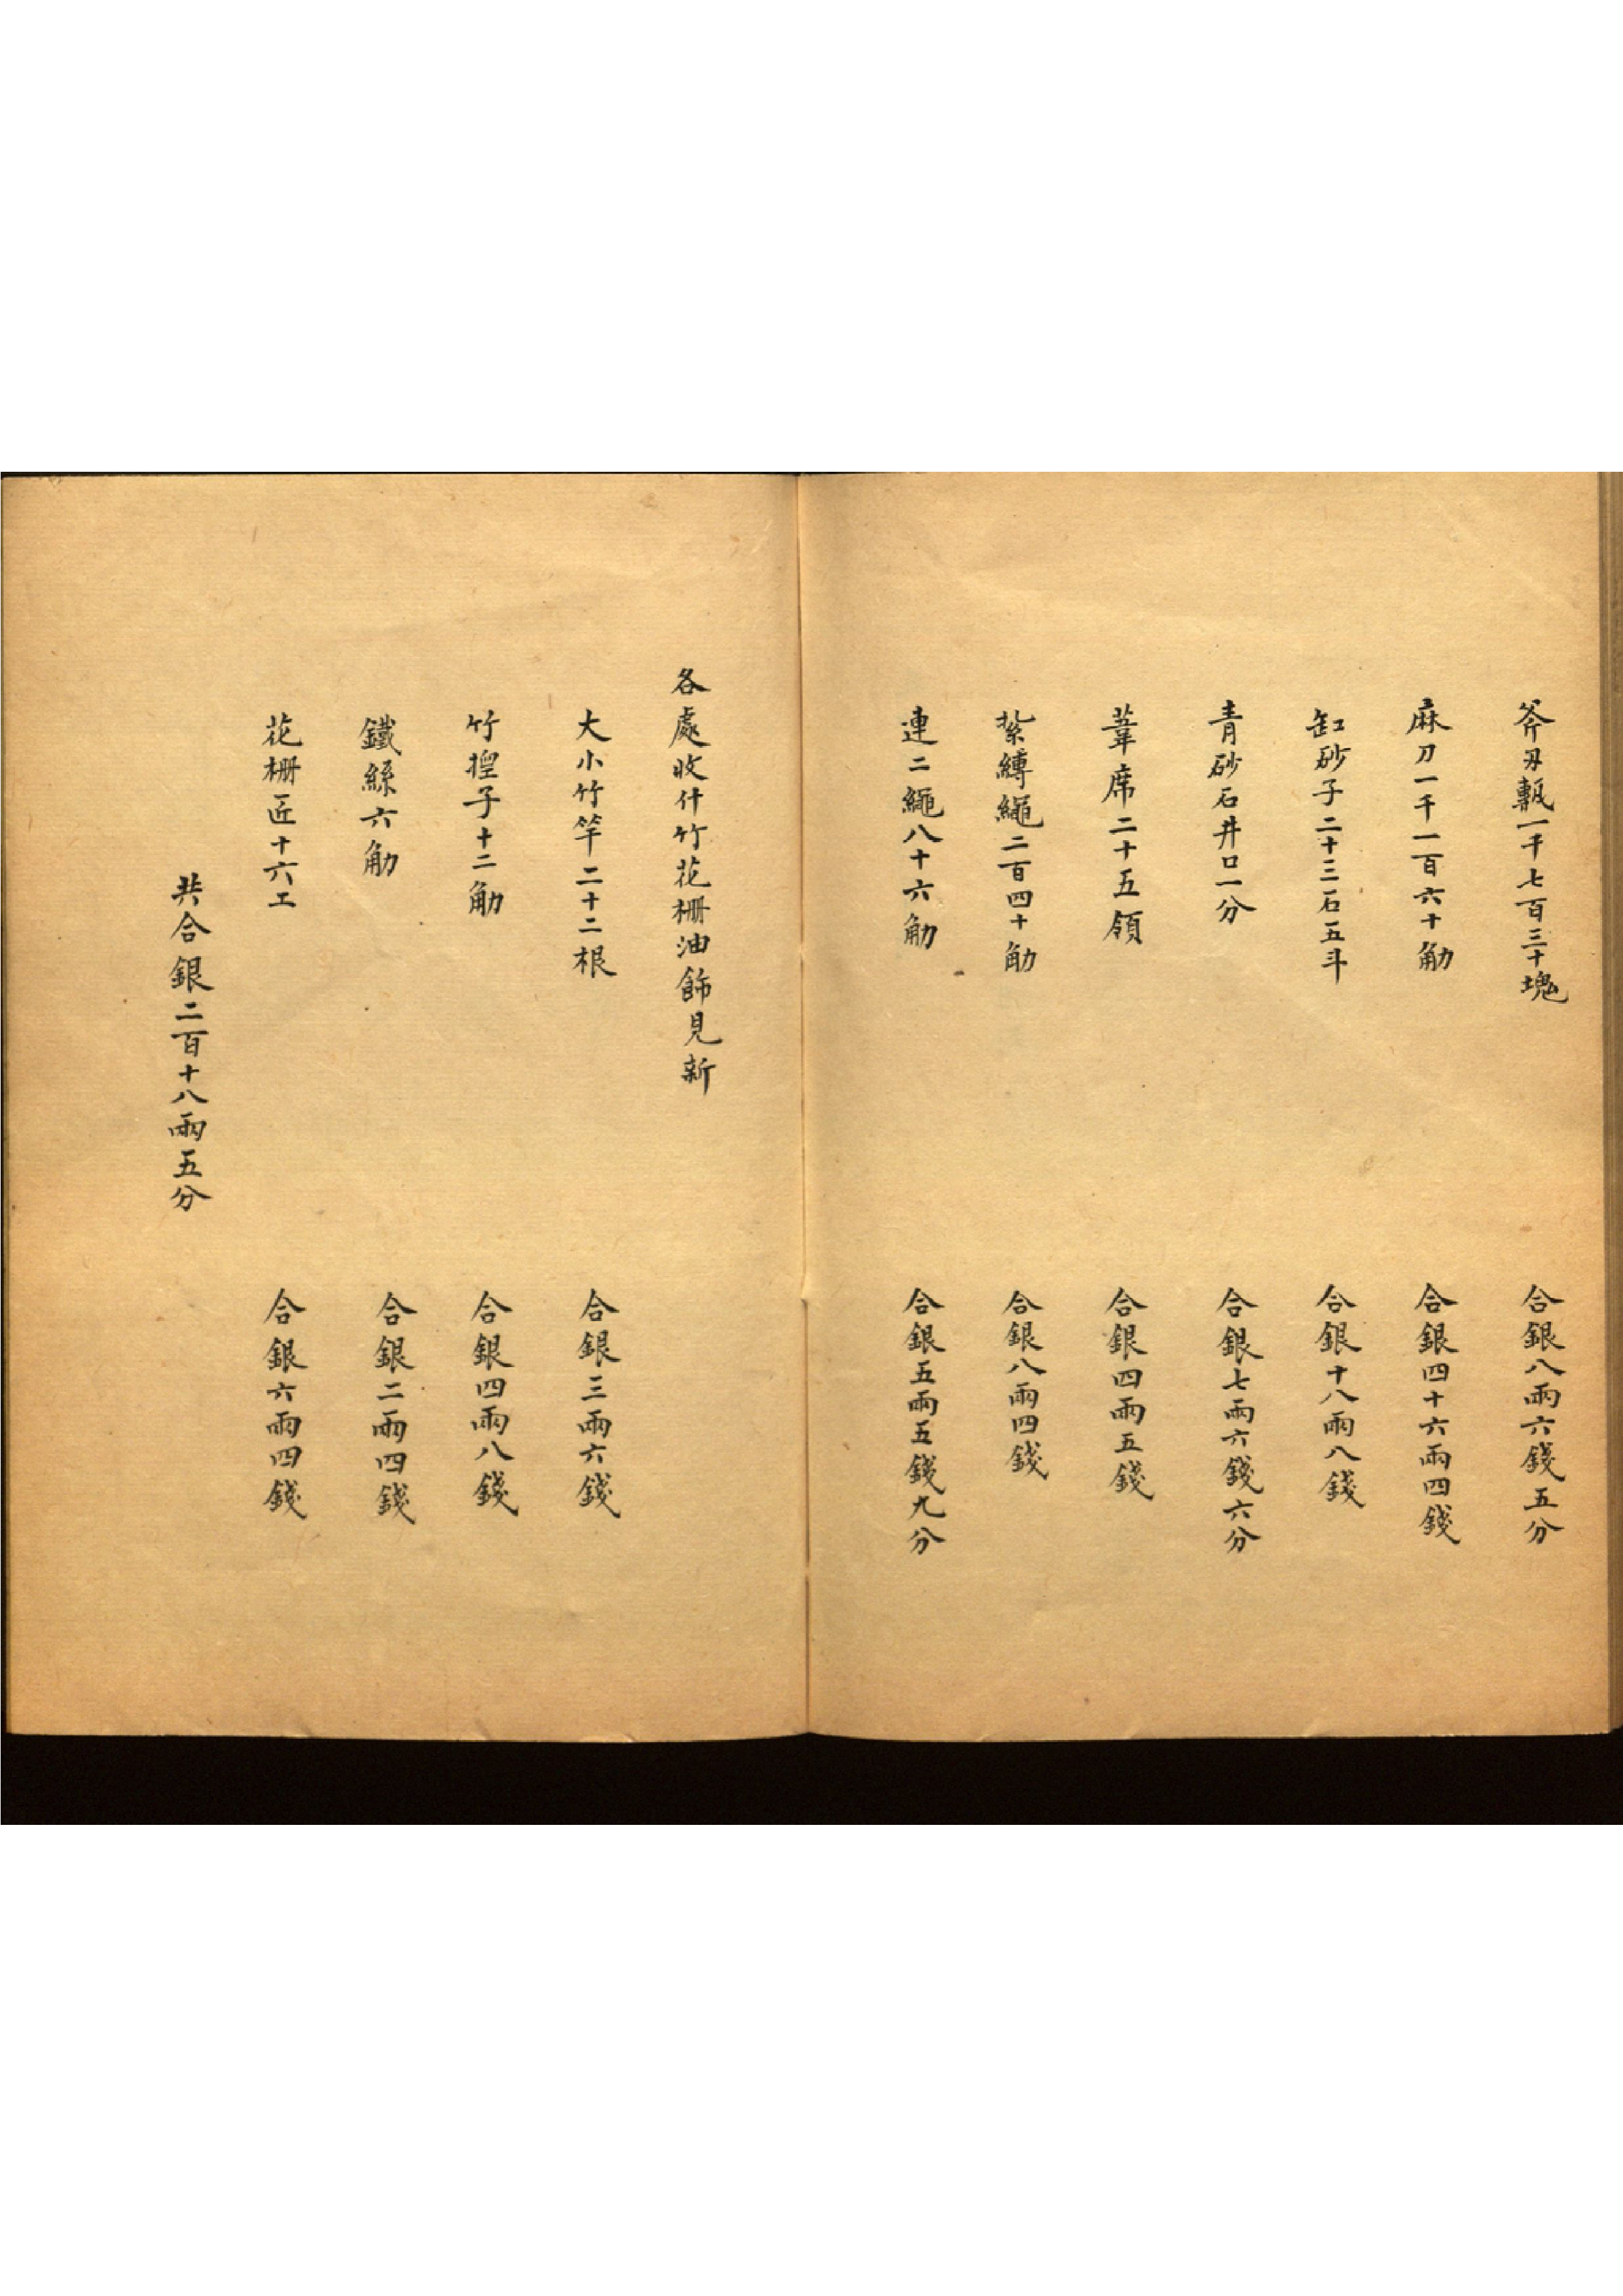 斧刄甎一千七百三十塊 合銀八兩六錢五分
麻刀一千一百六十觔 合銀四十六兩四錢
缸砂子二十三石五斗 合銀十八兩八錢
青砂石井口一分 合銀七兩六錢六分
葦席二十五領 合銀四兩五錢
紮縛繩二百四十觔 合銀八兩四錢
連二繩八十六觔 合銀五兩五錢九分
各處收什竹花柵油飾見新
大小竹竿二十二根 合銀三兩六錢
竹揘子十二觔 合銀四兩八錢
鐵絲六觔 合銀二兩四錢
花柵匠十六工 合銀六兩四錢
共合銀二百十八兩五分